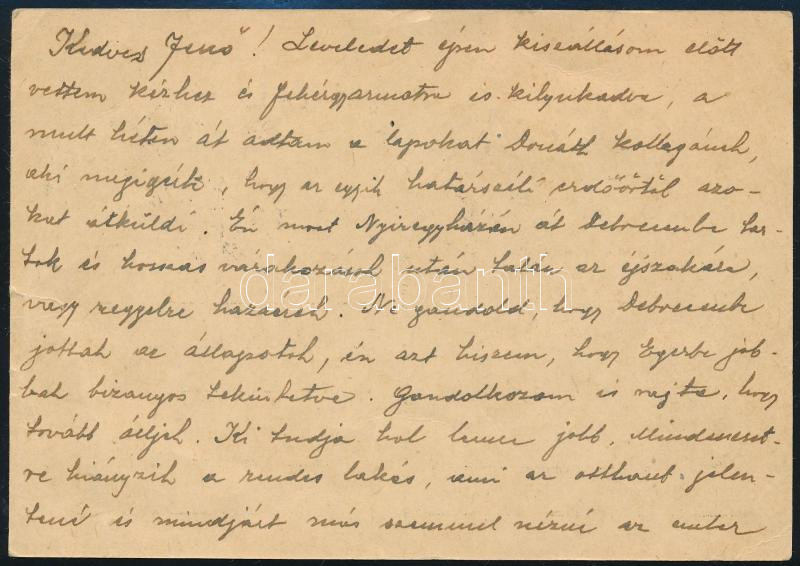 Kedves Jenő! Leveledet éppen kiszállásom előtt
vettem kézhez és Fehérgyarmatra is kilyukadva, a
mult héten át adtam a lapokat Donáth kollegának,
aki megigérte, hogy az egyik határszéli erdőőrtől azo-
kat átküldi. Én most Nyiregyházán át Debrecenbe tar-
tok és hosszas várakozások után talán az éjszakára,
vagy reggelre hazaérek. Ne gondold, hogy Debrecenbe
jottak az állapotok, én azt hiszem, hogy Egerbe job-
bak bizonyos tekintetve. Gondolkozom is rajta, hogy
tovább álljak. Ki tudja hol lenne jobb. Mindeneset-
re hiányzik a rendes lakás, ami az otthont jelen-
tené és mindjárt más szemmel nézné az ember
darabanth